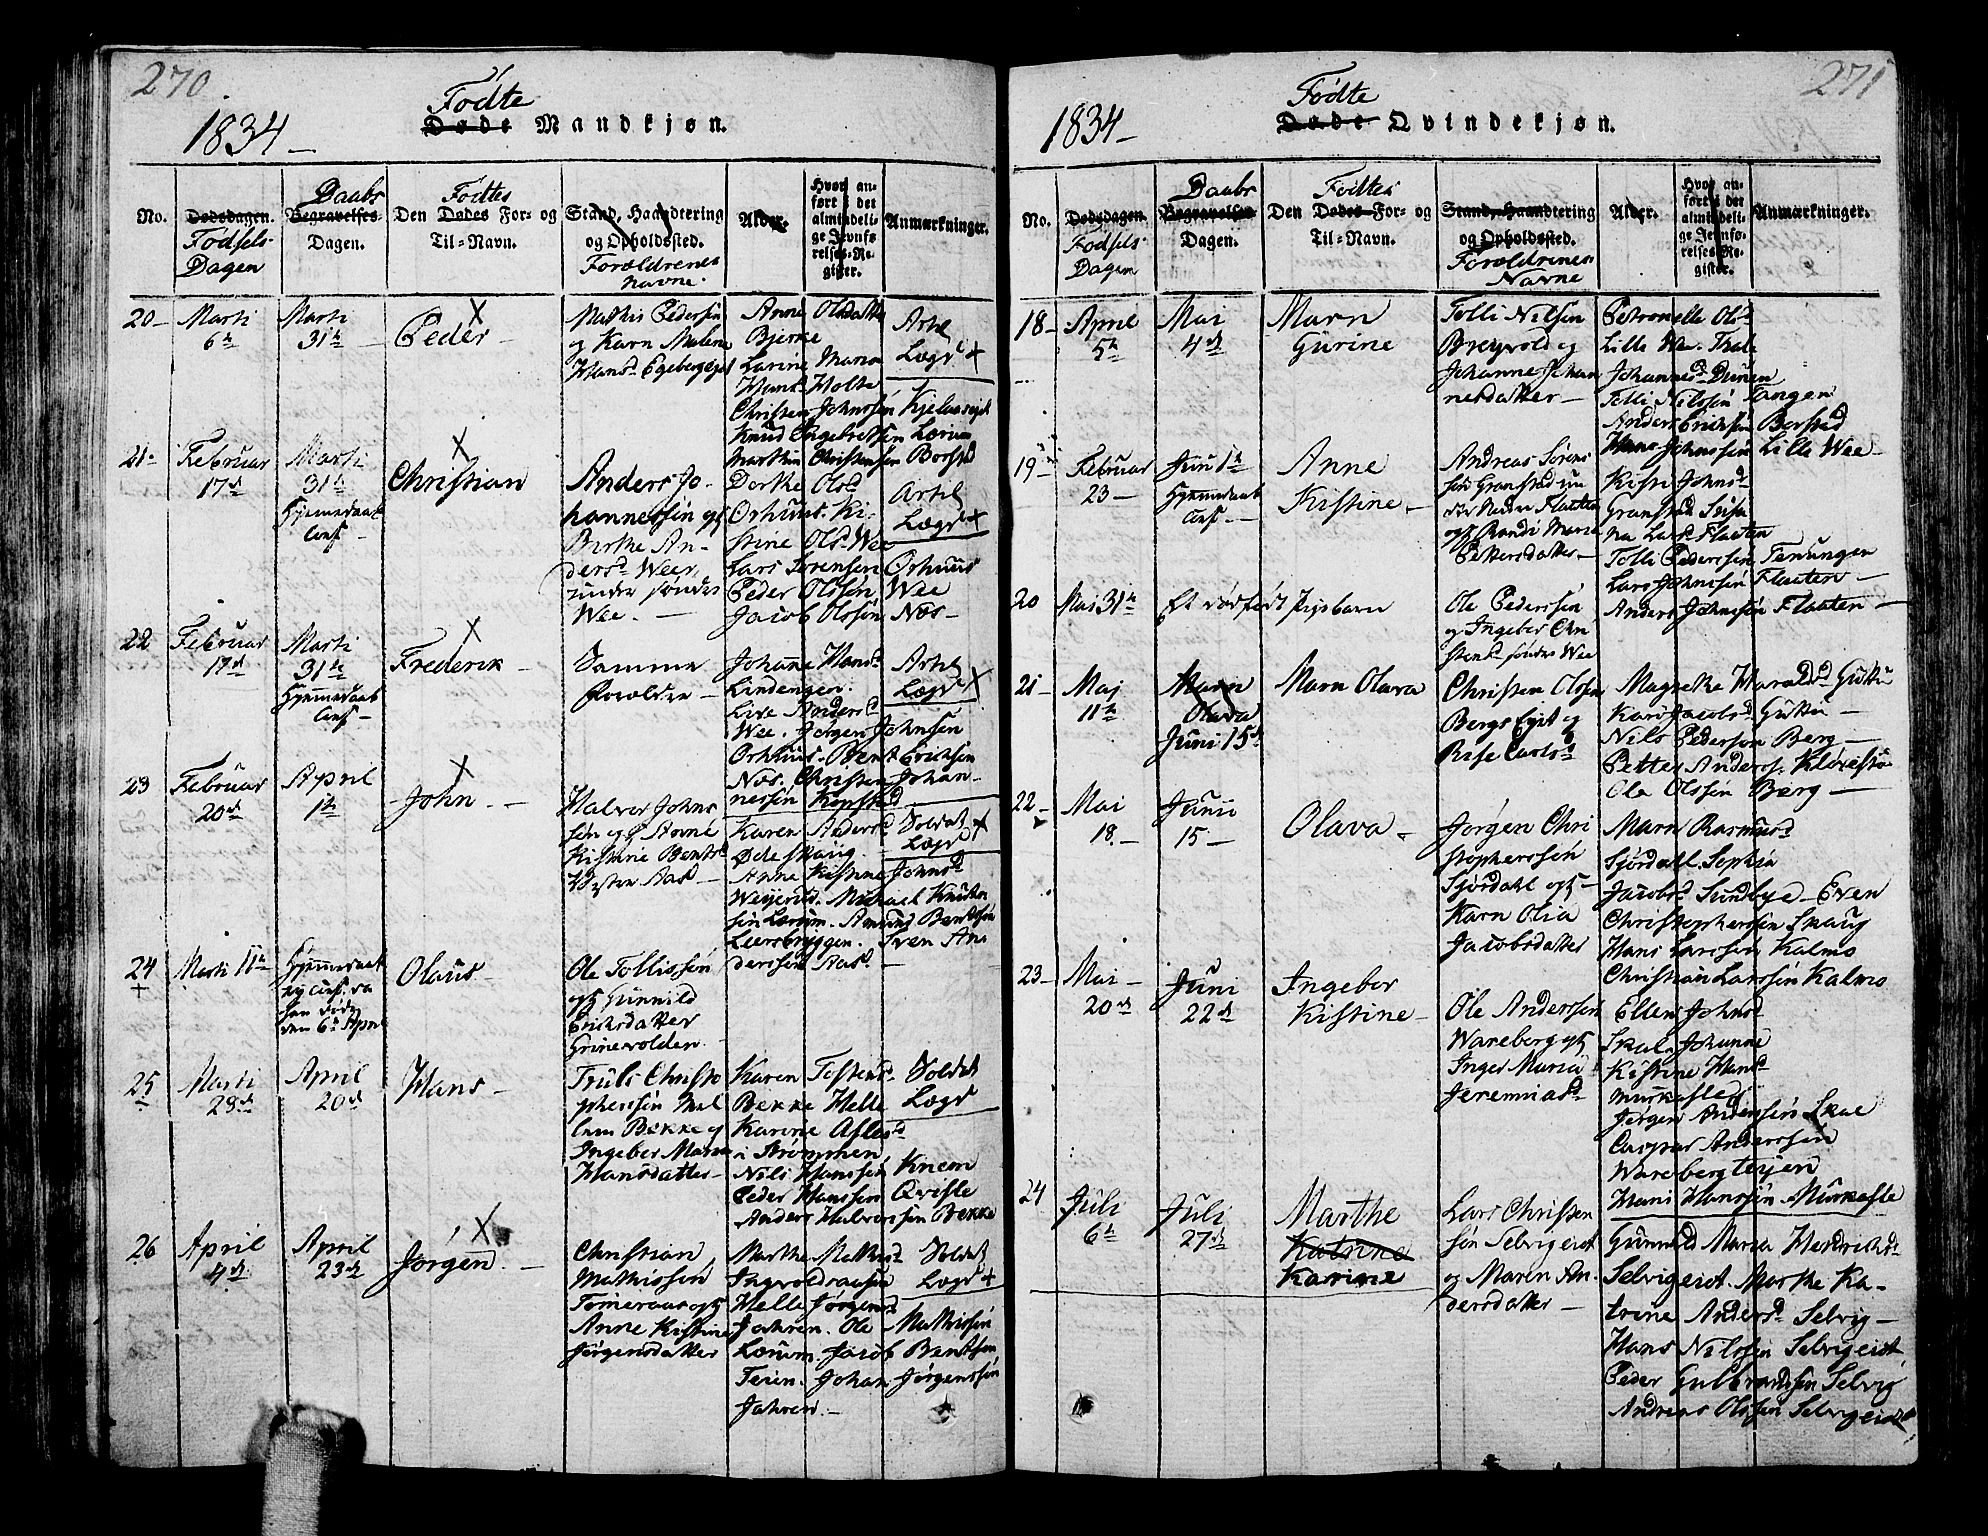 270.
1834 –
Fødte
Døde Mandkjøn.
No.
Dødsdagen.
Fødsels
Dagen
Daabs
Begravelses-
Dagen.
Fødtes
Den Dødes For- og
Til-Navn.
Stand, Haandtering
og Opholdssted.
Forældrenes
Navne.
Alder.
Hvor an-
ført i det
almindeli-
ge Jevnfø-
relses-Re-
gister.
Anmærkninger.
20 –
Marti
6te
Marti
31te
Peder –
Mathis Pedersen
og Karn Malene
Hansd Egebergeget
Anne Olsdatter
Bjerke
Larine Maria
Hansd Holte
Christen Johnssen
Knud Engebretsen Lærum
Marthin Christensen Borsted
Lægd +
21 –
Februar
17d
Marti
31te
Hjemmedaab
Conf –
Christian
Anders Jo-
hannessen og
Birthe An-
dersd Weer,
under søndre
Wee. –
Dorthe Olsd
Orhuus. Ki-
stine Olsd Wee
Lars Sørensen Orhuus
Peder Olssøn Wee
Jacob Olssøn Næs –
Lægd +
22
Februar
17d
Marti
31te
Hjemmedaab
Conf –
Frederik –
Samme
Forældre –
Johanne Hansd
Lindengen.
Live Andersd
Wee. Jørgen Johnsen
Orhuus. Bent Erichsen
Næs. Christen Johan-
nessen Kopstad
Lægd +
23
Februar
20d
April
1te
John. –
Halvor Johns
sen og Anne
Kistine Bentsd
Vesten Aas –
Karen Andersd
Ødeskaug.
Anne Kistine Johnsd
Weyerud. Michael Knuts
søn Lærum. Amund Bentsøn
Leersbryggen. Sven An
derssen Aas. –
Soldat
Lægd +
24
+
Marti 11te
Hjemmedaab
den 6te April
Olaus –
Ole Tollissøn
og Gunnild
Erichsdatter
Grinevolden.
25
Marti
23d
April
20d
Hans –
Truls Christo
phersøn Mel
lem Bekke og
Ingeber Maria
Hansdatter –
Karen Tostensd
Bekke Helle
Karine Aslesd
i Strømmen
Nils Hanssen Knem
Peder Hanssen Qvisle
Anders Halvorsen Bekke
Soldat
Lægd
26
April
4d
April
23d
Jørgen –
Christian
Mathissen
Tømeraas og
Anne Kistine
Jørgensdatter
Marthe Mathisd
Ingvoldraasen
Helle Jørgensd
Jahren. Ole Mathissøn
Lærum. Jacob Bentsen
Teien. Johan Jørgenssøn
Jahren –
Soldat
Lægd +
271
1834 –
Fødte
Døde Qvindekjøn.
No.
Dødsdagen.
Fødsels
Dagen
Daabs
Begravelses-
Dagen.
Fødtes
Den Dødes For- og
Til-Navn.
Stand, Haandtering
og Opholdssted.
Forældrenes
Navne
Alder.
Hvor an-
ført i det
almindeli-
ge Jevnfø-
relses-Re-
gister.
Anmærkninger.
18 –
April
5te
Mai
4d
Marn
Gurine
Tolli Nilsen
Breyvold og
Johanne Johan
nesdatter –
Petronelle Ols
Lille Wee.
Johannesd Dunen
Tolli Nilssøn Tangen
Anders Erichsen Borsted
Hans Johnssøn Lille Wee –
19 –
Februar
23 –
Juni 1te
Hjemmedaab
Conf. –
Anne
Kistine –
Andreas Sørens
søn Granstad un
der Nedre Flaatten
og Randi Marie
Pettersdatter –
Kisti Johnsd
Granstad
na Larsd Flaaten
Tolli Pederssen Tenungen
Lars Johnssøn Flaaten –
Anders Johnssøn Flaaten –
20
Mai 31te
Et dødfødt Pigebarn
Ole Pederssen
og Ingeber Chri
stensd søndre Wee
21 –
Maj
11te
Marn
Olava
Juni 15d
Marn Olava
Christen Olssen
Bergs Eyet og
Rise Carlsd
Magrethe Haralsd Guttu
Kari Jacobsd Guttu –
Nils Pederson Berg –
Petter Anders.
Ole Olssøn Berg –
22 –
Mai
18. –
Junii
15 –
Olava –
Jørgen Chri
stopherssøn
Sjørdahl og
Karn Olia
Jacobsdatter
Marn Rasmusd
Sjørdahl. Sophia
Jacobsd Sundbye – Even
Christophersen Skaug
Hans Larssøn Kalmo
Christian Larssøn Kalmo
23 –
Mai –
20d
Juni
22d
Ingeber
Kistine –
Ole Anderssen
Wareberg og
Inger Maria
Jeremiasd
Ellen Johnsd
Skal. Johanne
Kistine Hansd
Murkasle
Jørgen Anderssøn Skal
Casper Anderssøn
Warebergteyen
Hans Hanssøn. Murkasle
24
Juli
6te
Juli
27d
Marthe
Katrine
Karine
Lars Christen
søn Selvigeiet
og Maren An-
dersdatter –
Gunnild Maria Hendrichsd
Selvigeiet. Marthe Ka-
trine Andersd Selvig –
Hans Nilssøn Selvigeiet
Peder Gulbrandsen Selvig
Andreas Olssøn Selvigeiet